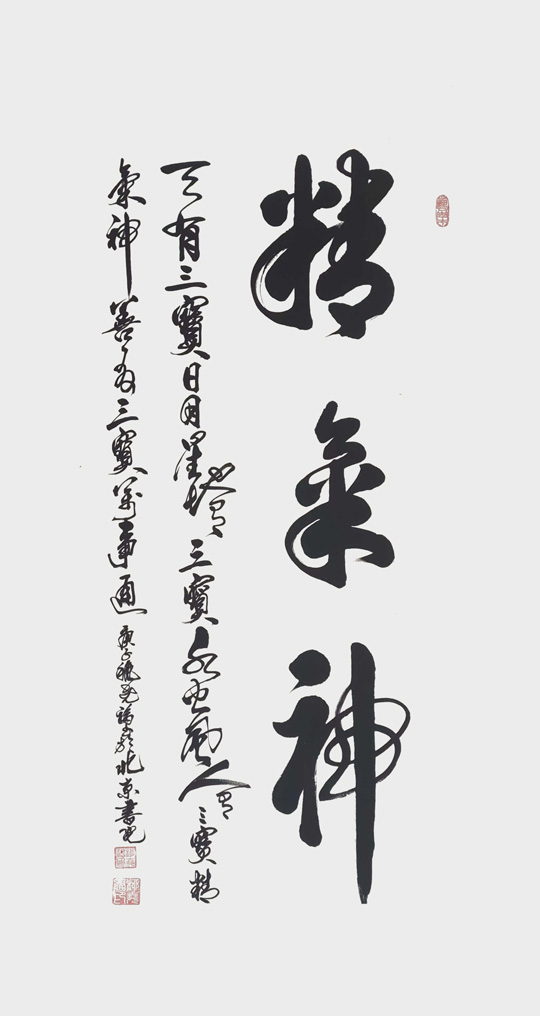 精氣神
天有三寶日月星地有三寶水火風人有三寶精
氣神善為三寶萬事通 庚子 於北京書